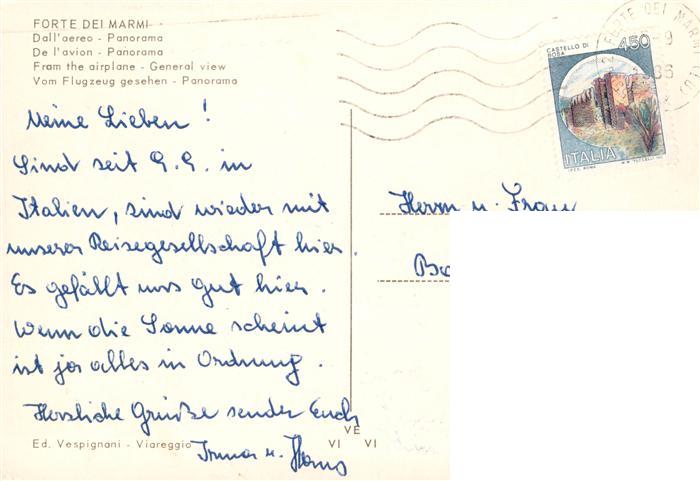 FORTE DEI MARMI
Dall'aereo - Panorama
De l'avion - Panorama
From the airplane - General view
Vom Flugzeug gesehen - Panorama
Meine Lieben!
Sind seit 9.9. in
Italien, sind wieder mit
unserer Reisegesellschaft hier.
Es gefällt uns gut hier.
Wenn die Sonne scheint
ist ja alles in Ordnung.
Herzliche Grüße sendet Euch
Irma u. Hans
VE
VI VI
Ed. Vespignani - Viareggio
FORTE DEI MARMI
CASTELLO DI
BOSA
450
ITALIA
I.P.Z.S. ROMA
Herrn u. Frau